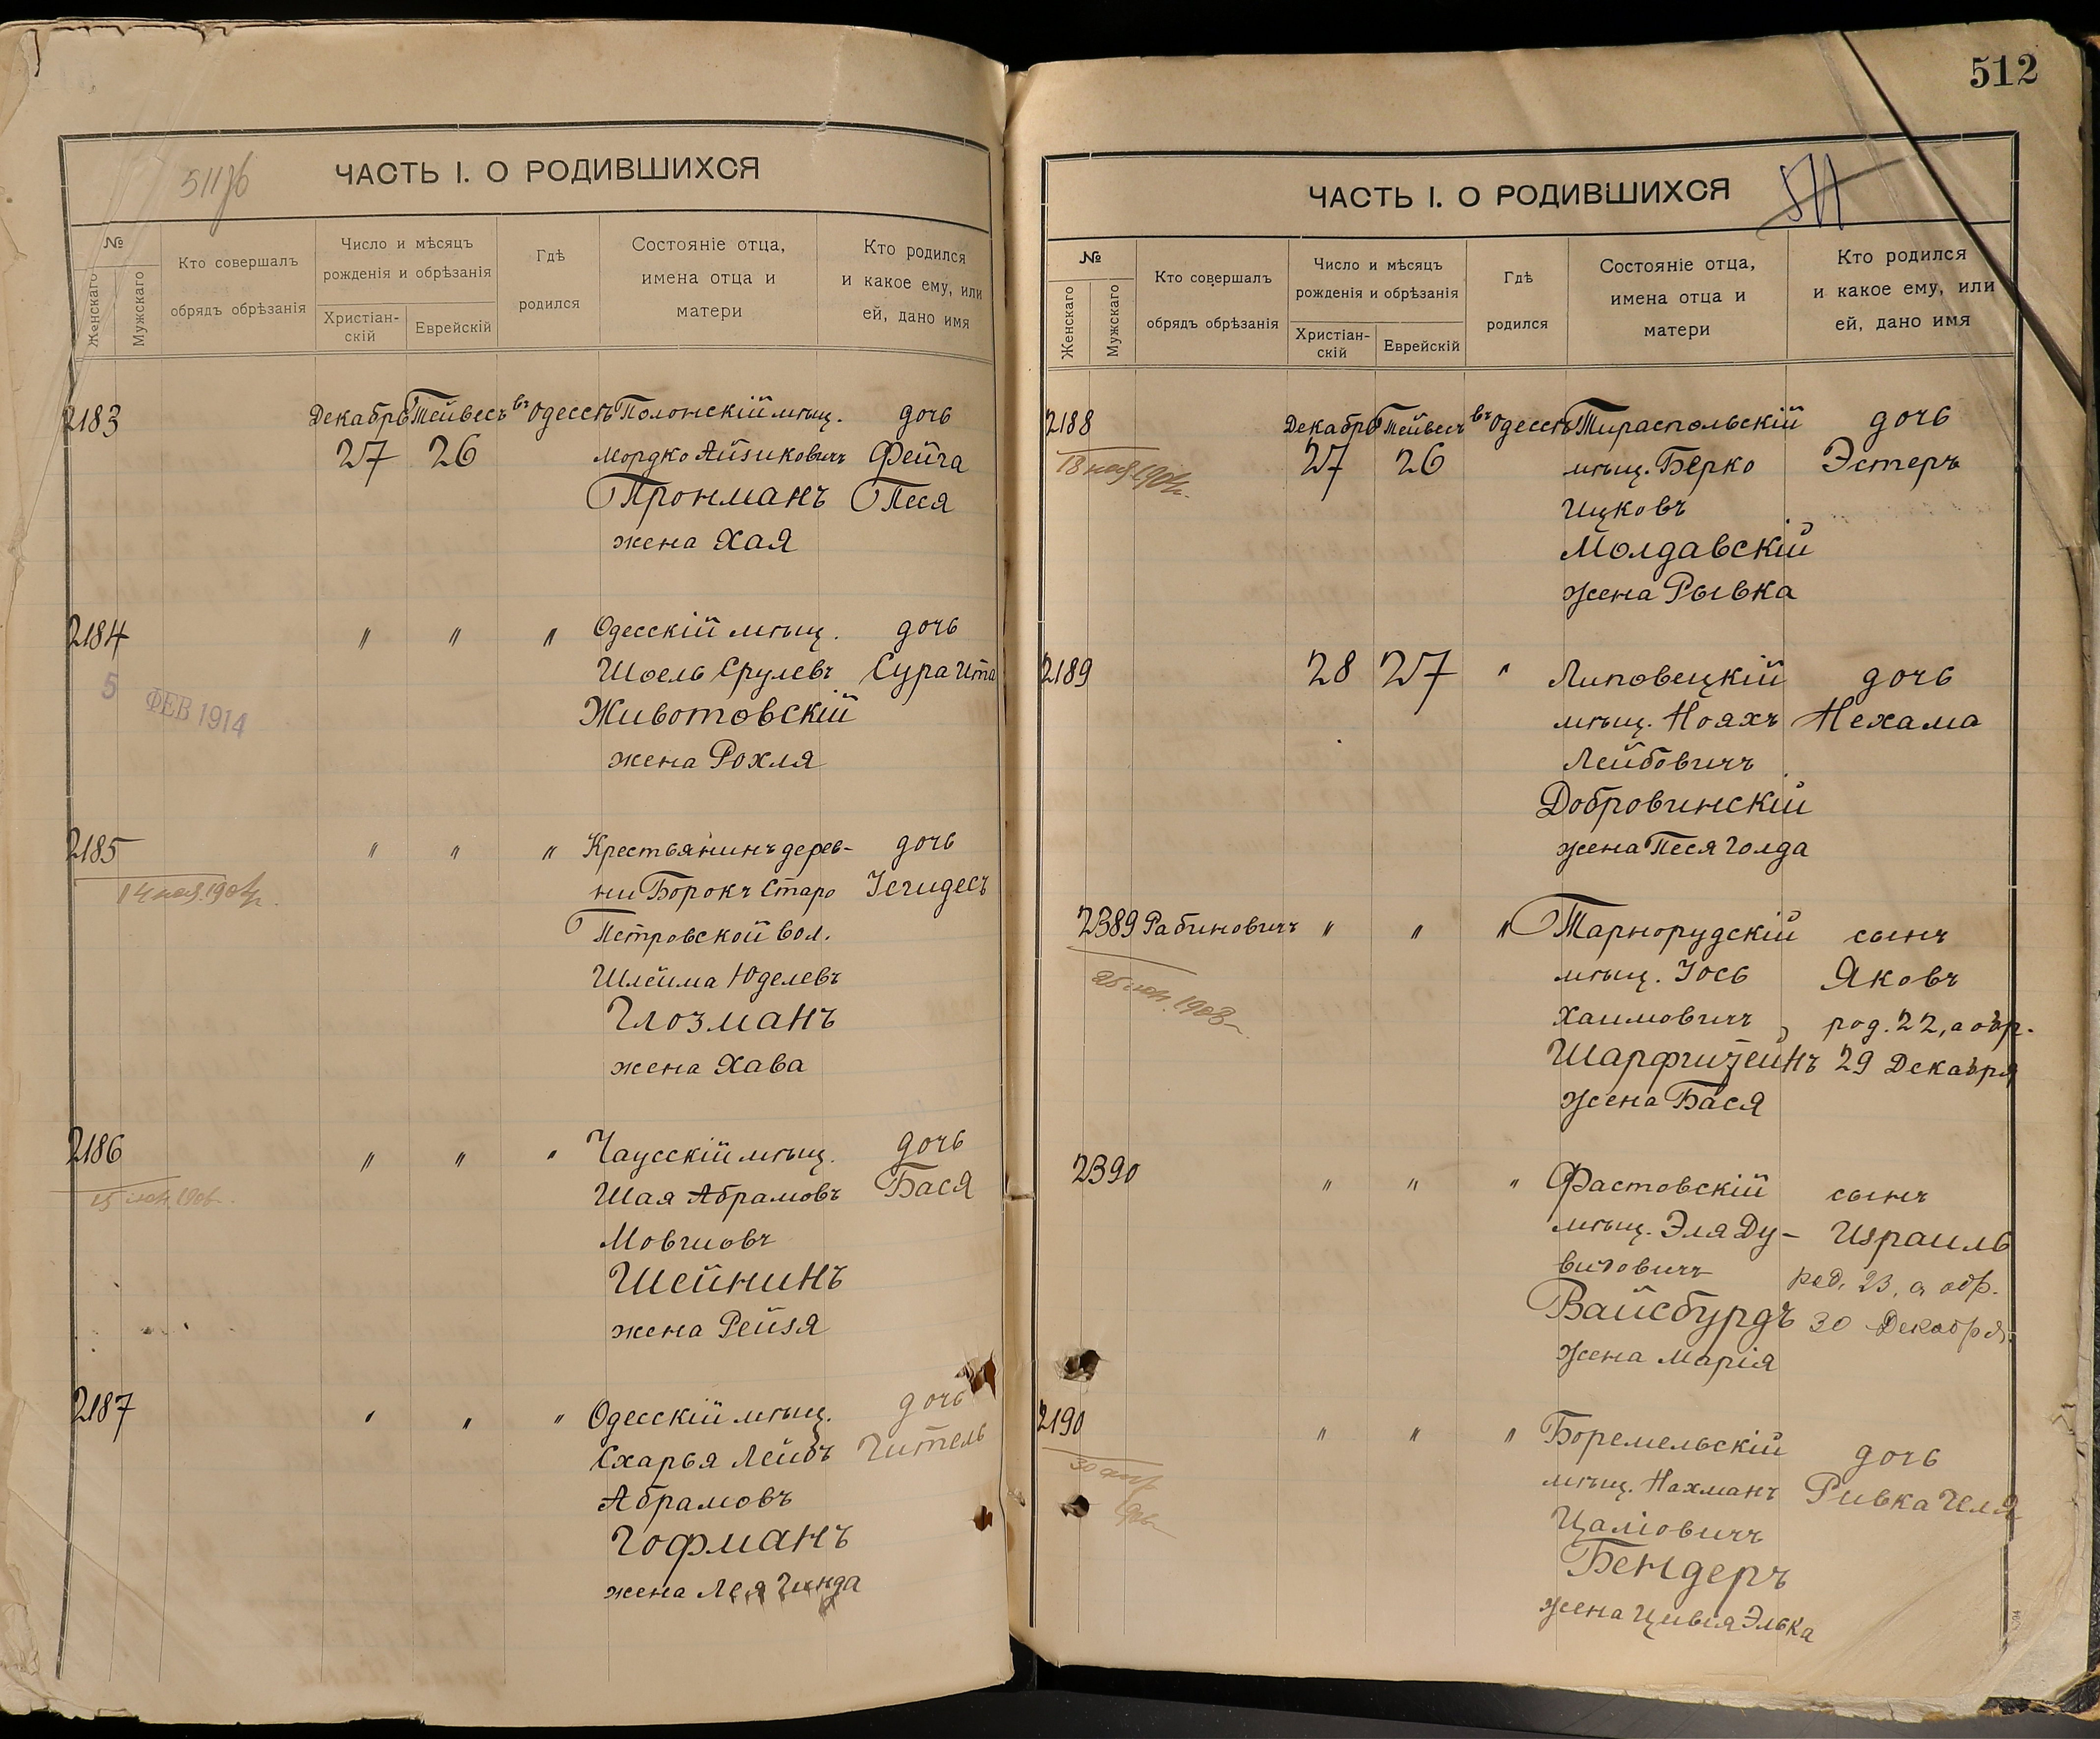 ЧАСТЬ I. О РОДИВШИХСЯ
№
Женскаго
Мужскаго
Кто совершалъ
обрядъ обрѣзанія
Число и мѣсяцъ
рожденія и обрѣзанія
Христіан-
скій
Еврейскій
Гдѣ
родился
Состояніе отца,
имена отца и
матери
Кто родился
и какое ему, или
ей, дано имя
2183 Декабрь Тейвесъ въ Одессѣ Полонскій мѣщ. дочь
27 26 Мордко Айзиковичъ Фейга
Пронманъ Песя
жена Хая
2184 " " " Одесскій мѣщ. дочь
Шоель Срулевъ Сура Ита
5 ФЕВ 1914
Животовскій
жена Рохля
2185 " " " Крестьянинъ дерев- дочь
ни Борокъ Старо Іегудесъ
Петровской вол.
Шлейма Юделевъ
Глозманъ
жена Хава
2186 " " " Чаусскій мѣщ. дочь
Шая Абрамовъ Бася
Мовшовъ
Шейнинъ
жена Рейзя
2187 " " " Одесскій мѣщ. дочь
Схарья Лейбъ Гитель
Абрамовъ
Гофманъ
жена Лея Гинда
512
ЧАСТЬ I. О РОДИВШИХСЯ
511
№
Женскаго
Мужскаго
Кто совершалъ
обрядъ обрѣзанія
Число и мѣсяцъ
рожденія и обрѣзанія
Христіан-
скій
Еврейскій
Гдѣ
родился
Состояніе отца,
имена отца и
матери
Кто родился
и какое ему, или
ей, дано имя
2188 Декабрь Тейвесъ въ Одессѣ Тираспольскій дочь
27 26 мѣщ. Берко Эстеръ
Ицковъ
Молдавскій
жена Рывка
2189 28 27 " Липовецкій дочь
мѣщ. Нояхъ Нехама
Лейбовичъ
Добровинскій
жена Песя Голда
2389 Рабиновичъ " " " Тарнорудскій сынъ
мѣщ. Іось Яковъ
Хаимовичъ род. 22, а обр.
Шарфшзейнъ 29 Декабря
жена Бася
2390 " " " Фастовскій сынъ
мѣщ. Эля Ду- Израиль
видовичъ род. 23, а обр.
Вайсбурдъ 30 Декабря.
жена Марія
2190 " " " Боремельскій дочь
мѣщ. Нахманъ Ривка Геля
Цаліовичъ
Бендеръ
жена Цивія Элька